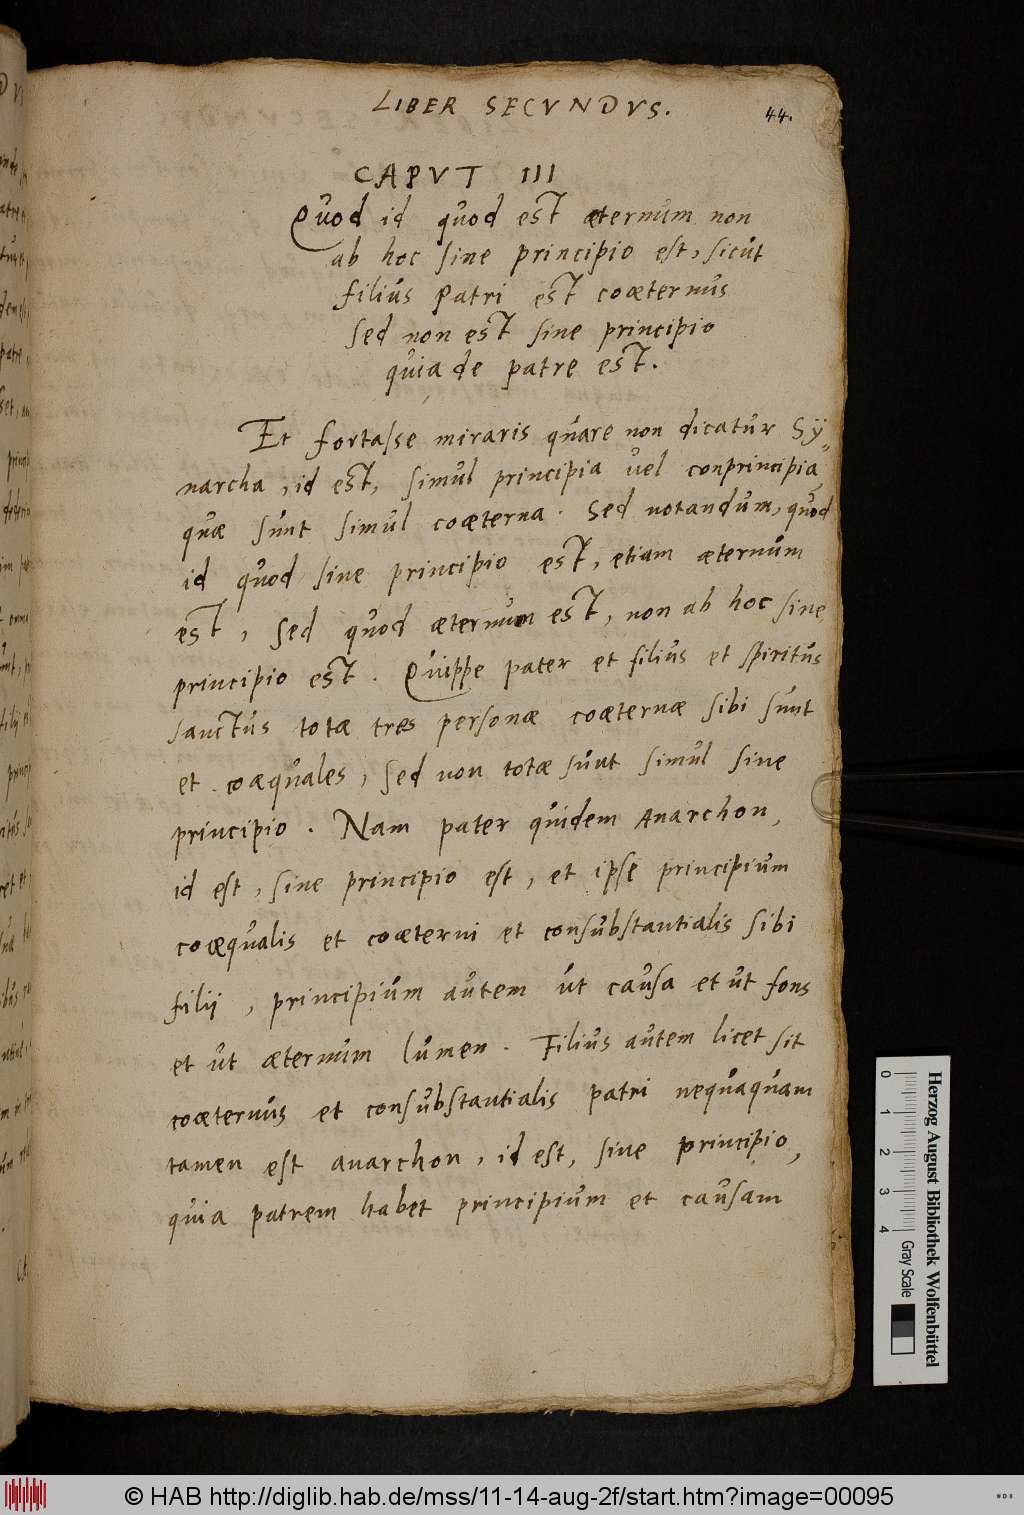 LIBER SECVNDVS.
44.
CAPVT III
Quod id quod est æternum non
ab hoc sine principio est, sicut
filius Patri est coæternus
sed non est sine principio
quia de patre est.
Et fortasse miraris quare non dicatur Sy„
narcha, id est, simul principia vel conprincipia
quæ sunt simul coæterna. Sed notandum, quod
id quod sine principio est, etiam æternum
est, sed quod æternum est, non ab hoc sine
principio est. Quippe pater et filius et spiritus
sanctus totæ tres personæ coæternæ sibi sunt
et coæquales, sed non totæ sunt simul sine
principio. Nam pater quidem Anarchon,
id est, sine principio est, et ipse principium
coæqualis et coæterni et consubstantialis sibi
filii, principium autem ut causa et ut fons
et ut æternum lumen. Filius autem licet sit
coæternus et consubstantialis patri nequaquam
tamen est anarchon, id est, sine principio,
quia patrem habet principium et causam
0 1 2 3 4
Herzog August Bibliothek Wolfenbüttel
Gray Scale
© HAB http://diglib.hab.de/mss/11-14-aug-2f/start.htm?image=00095